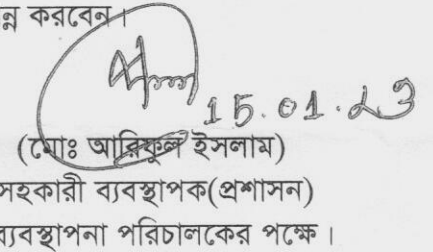 ন্ন করবেন।
15.01.23
(মোঃ আরিফুল ইসলাম)
সহকারী ব্যবস্থাপক(প্রশাসন)
ব্যবস্থাপনা পরিচালকের পক্ষে।